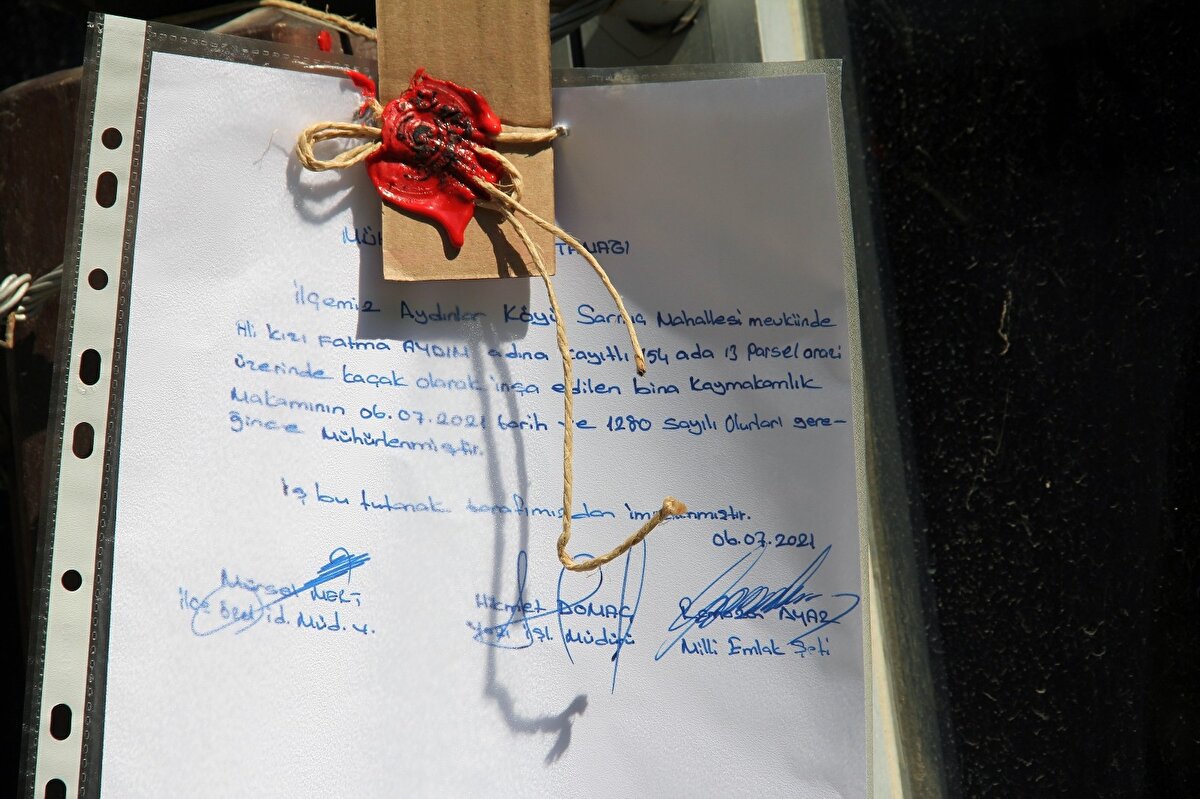 TANAĞI
İlçemiz Aydınlar Köyü Sarma Mahallesi mevkiinde
Ali kızı Fatma AYDIN adına kayıtlı 154 ada 13 Parsel arazi
üzerinde kaçak olarak inşa edilen bina Kaymakamlık
Makamının 06.07.2021 tarih ve 1280 sayılı Olurları gere-
ğince Mühürlenmiştir.
İş bu tutanak tarafımızdan
06.07.2021
Mürsel MERT Hikmet DOMAÇ AYAZ
ilçe özel id. Müd. v. Yazı İşl. Müdürü Milli Emlak Şefi